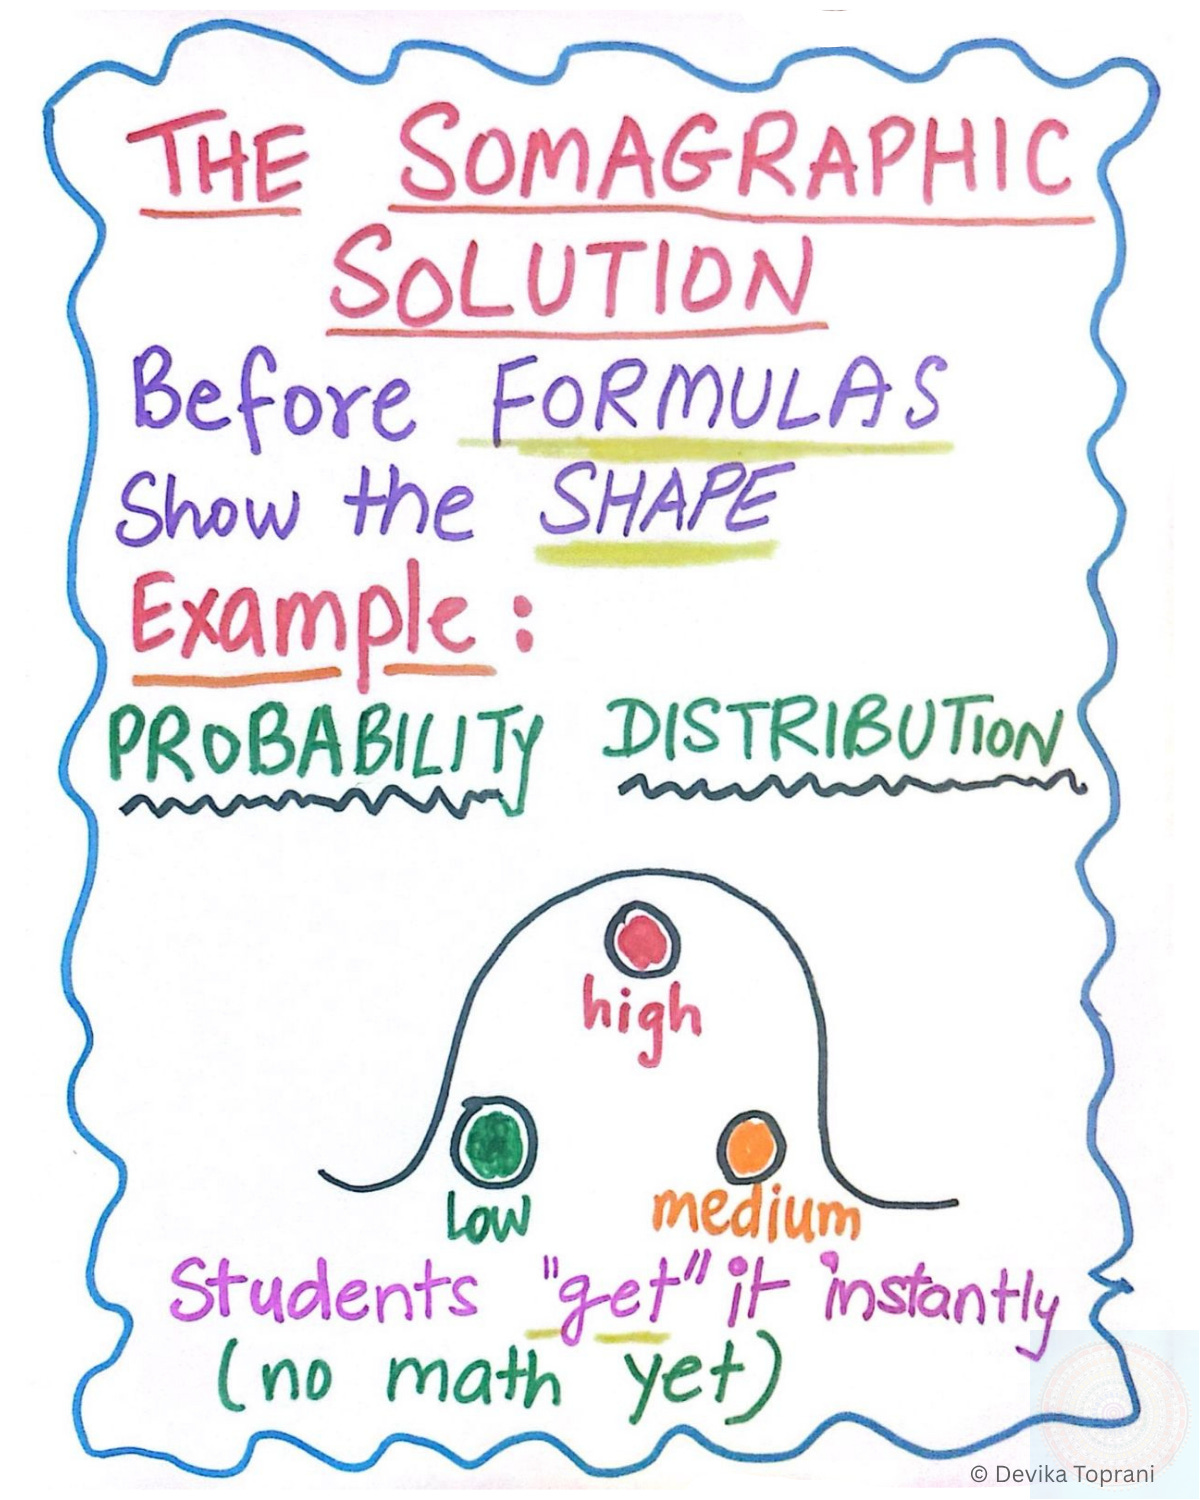 THE SOMAGRAPHIC
SOLUTION
Before FORMULAS
Show the SHAPE
Example :
PROBABILITY DISTRIBUTION
high
low
medium
Students "get" it instantly
(no math yet)
© Devika Toprani